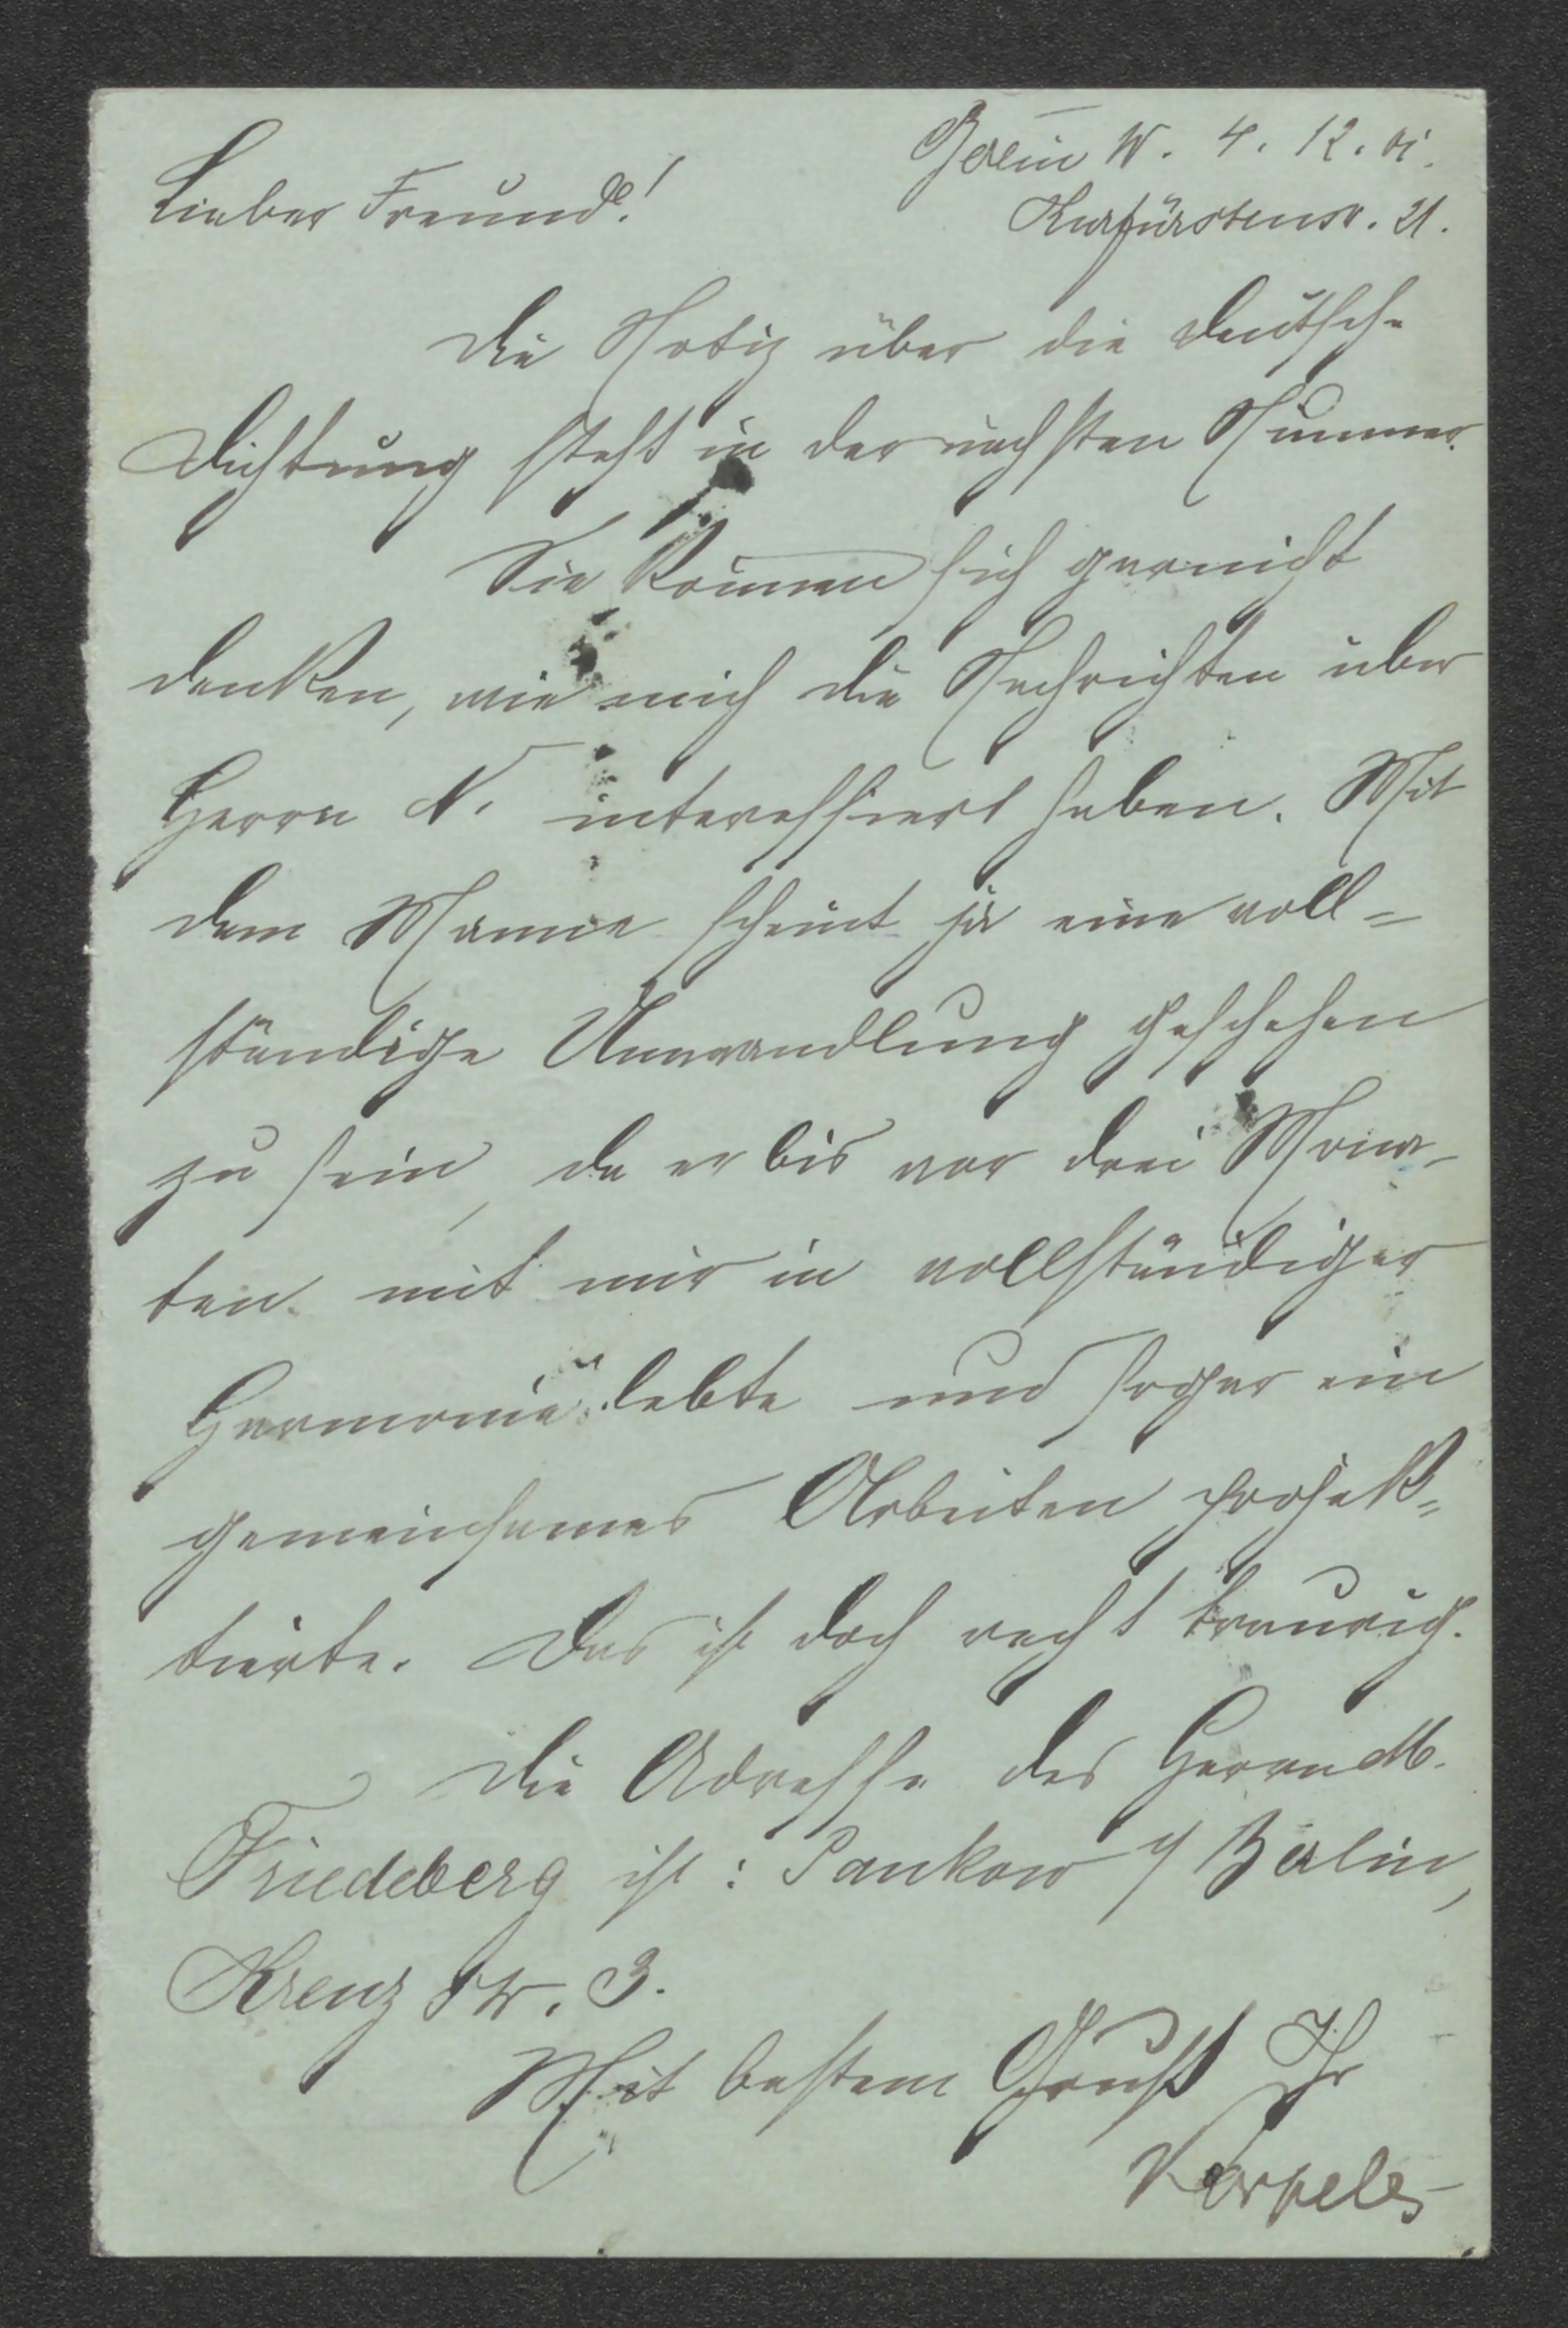 Berlin W. 4. 12. 01.
Lieber Freund!
Kurfürstenstr. 21.
Die Notiz über die Deutsche
Dichtung steht in der nächsten Nummer.
Sie können sich garnicht
denken, wie mich die Nachrichten über
Herrn N. interessiert haben. Mit
dem Manne scheint ja eine voll=
ständige Umwandlung geschehen
zu sein, da er bis vor drei Mona-
ten mit mir in vollständiger
Harmonie lebte und sogar ein
gemeinsames Arbeiten projek=
tierte. Das ist doch recht traurig.
Die Adresse des Herrn M.
Friedeberg ist: Pankow b/ Berlin,
Kreuzstr. 3.
Mit bestem Gruß Ihr
Karpeles